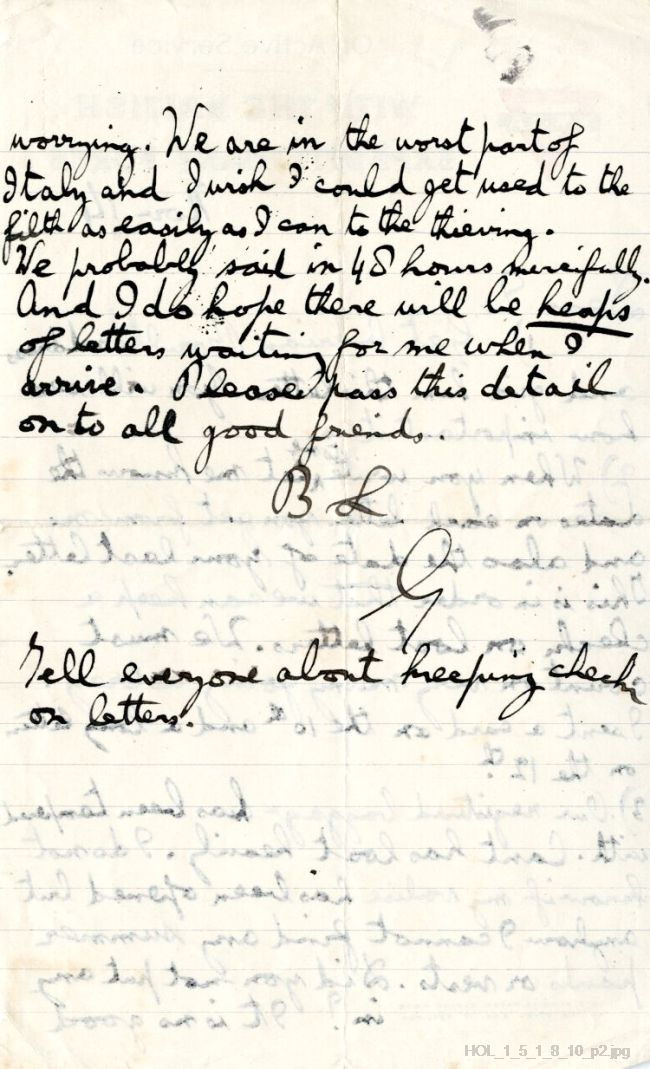 worrying. We are in the worst part of
Italy and I wish I could get used to the
filth as easily as I can to the thieving.
We probably sail in 48 hours mercifully.
And I do hope there will be heaps
of letters waiting for me when I
arrive. Please pass this detail
on to all good friends.
B L
G
Tell everyone about keeping check
on letters.
HOL_1_5_1_8_10_p2.jpg